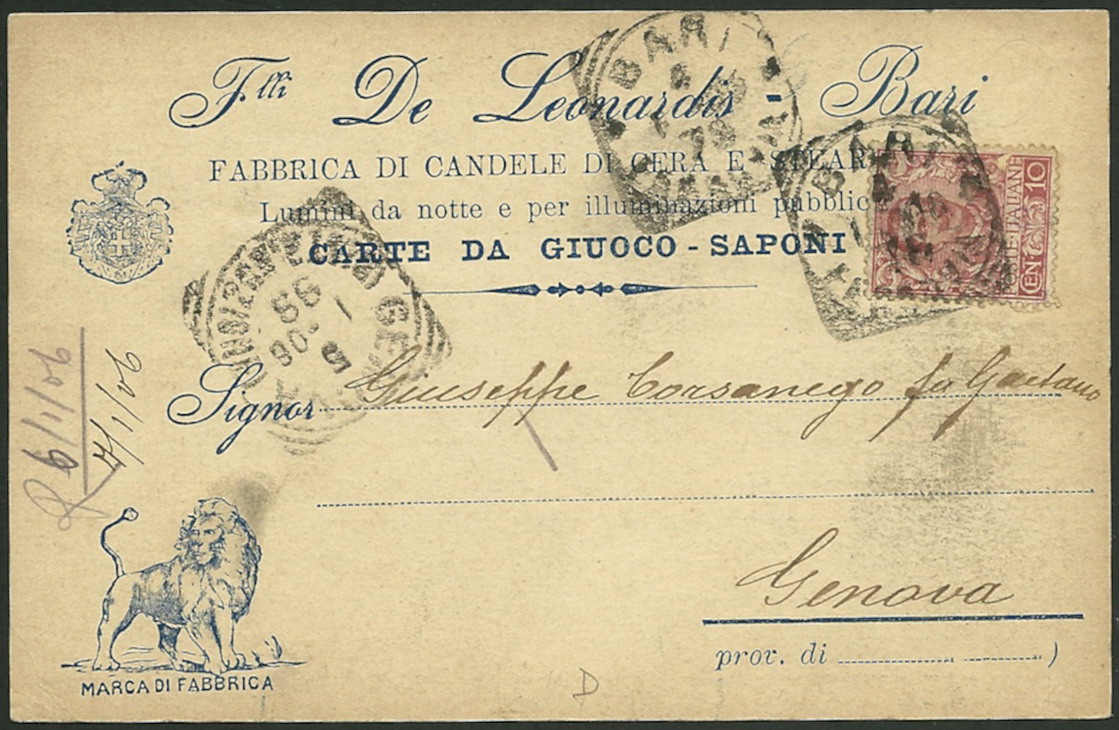 Flli De Leonardis - Bari
FABBRICA DI CANDELE DI CERA E STEAR
Lumini da notte e per illuminazioni pubblic
CARTE DA GIUOCO - SAPONI
BARI
BARI
POSTE ITALIANE
CENT. 10
Signor Giuseppe Corsanego fu Gaetano
6/1/06
4/1/06
Genova
prov. di )
MARCA DI FABBRICA
D